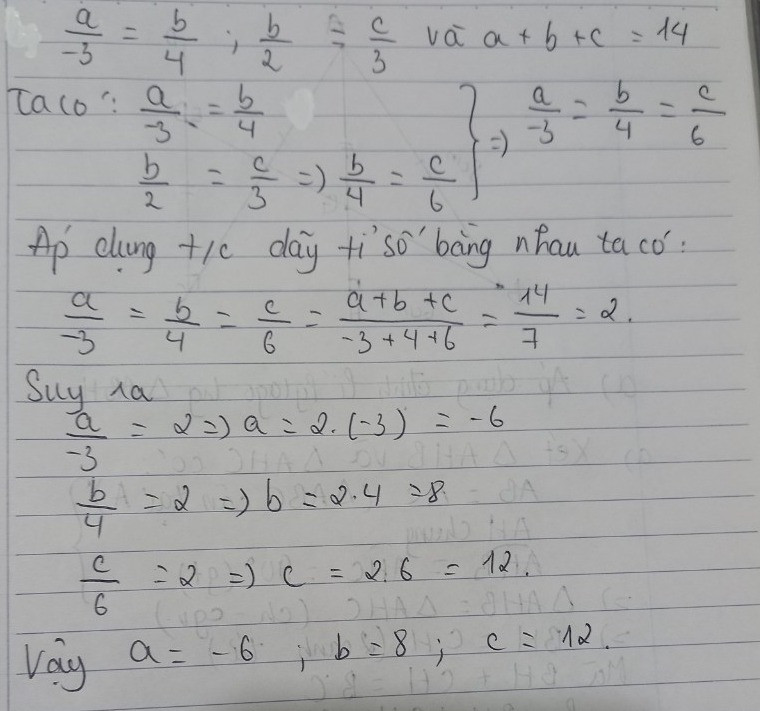 a/-3 = b/4 ; b/2 = c/3 và a + b + c = 14
Ta có: a/-3 = b/4
b/2 = c/3 => b/4 = c/6 } => a/-3 = b/4 = c/6
Áp dụng t/c dãy tỉ số bằng nhau ta có:
a/-3 = b/4 = c/6 = (a+b+c)/(-3+4+6) = 14/7 = 2.
Suy ra
a/-3 = 2 => a = 2.(-3) = -6
b/4 = 2 => b = 2.4 = 8
c/6 = 2 => c = 2.6 = 12.
Vậy a = -6 ; b = 8 ; c = 12.